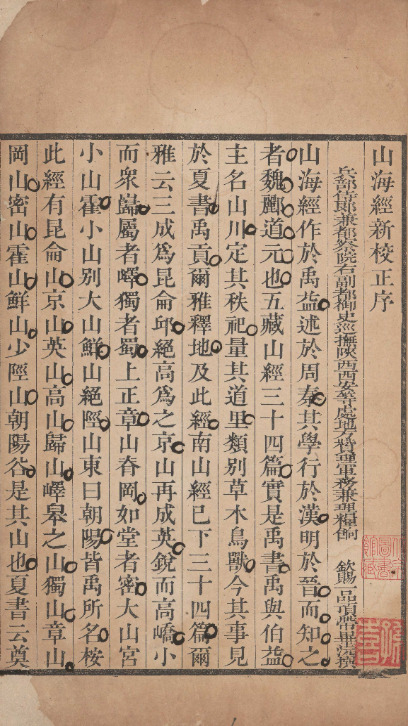 山海經新校正序
兵部侍郎兼都察院右副都御史巡撫陝西西安等處地方贊理軍務兼理糧餉　欽賜一品頂帶畢沅撰
山海經作於禹益述於周秦其學行於漢明於晉而知之
者魏酈道元也五藏山經三十四篇實是禹書禹與伯益
主名山川定其秩祀量其道里類別草木鳥獸今其事見
於夏書禹貢爾雅釋地及此經南山經已下三十四篇爾
雅云三成爲昆侖邱絕高爲之京山再成英銳而高嶠小
而衆巋屬者嶧獨者蜀上正章山脊岡如堂者密大山宮
小山霍小山別大山鮮山絕陘山東曰朝陽皆禹所名桉
此經有昆侖山京山英山高山歸山嶧皋之山獨山章山
岡山密山霍山鮮山少陘山朝陽谷是其山也夏書云奠